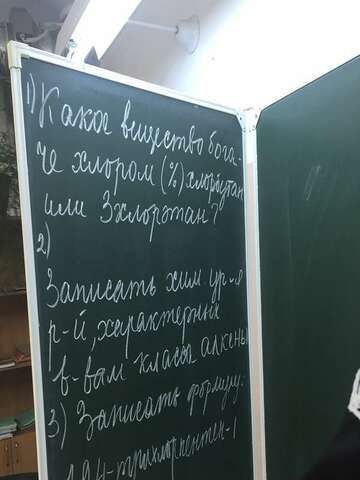 1) Какое вещество бога-
че хлором (%) хлорбутан
или 3хлорэтан?
2)
Записать хим. ур-я
р-й, характерных
в-вам класса алкены
3) Записать формулу:
1,2,4-трихлорпентен-1